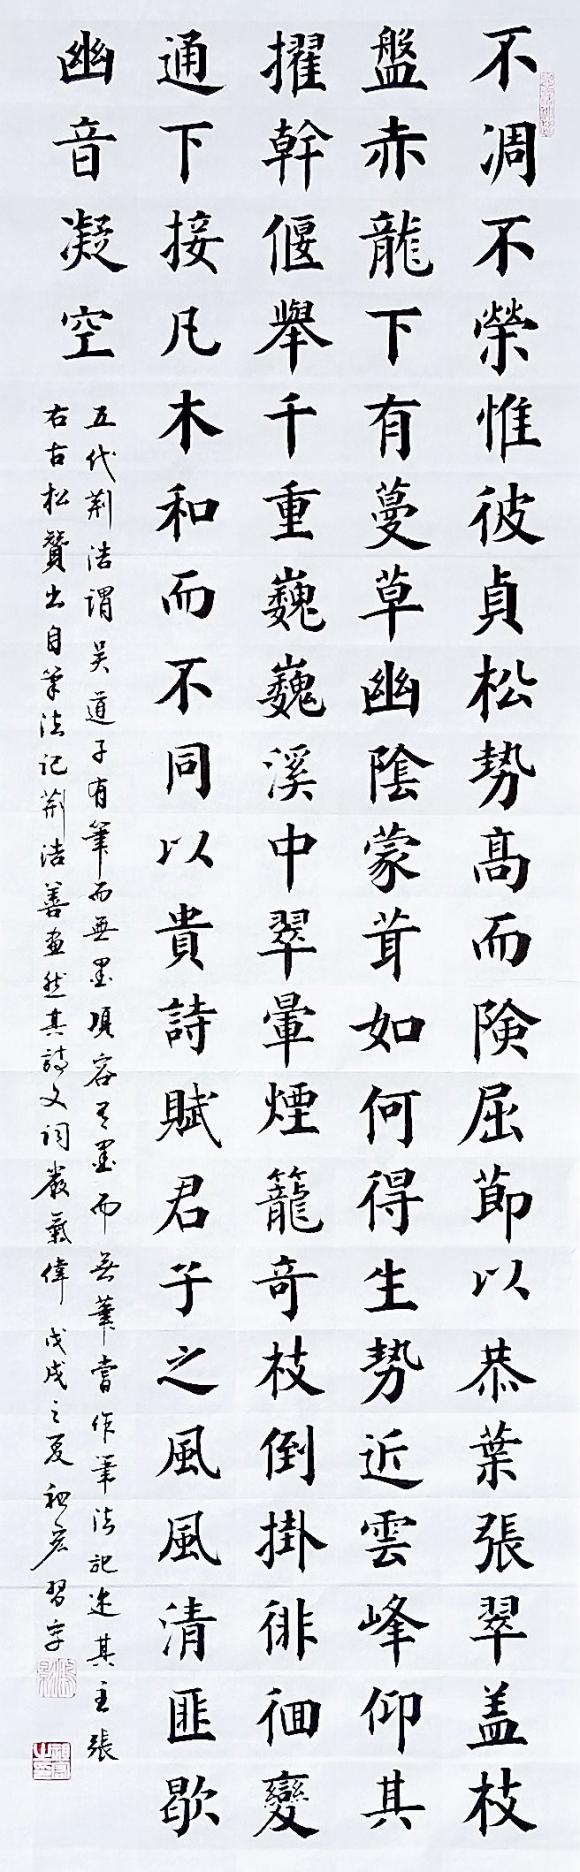 不凋不榮惟彼貞松勢髙而険屈莭以恭葉張翠盖枝
盤赤龍下有蔓草幽陰蒙茸如何得生勢近雲峰仰其
擢幹偃舉千重巍巍溪中翠暈煙籠奇枝倒掛徘徊變
通下接凡木和而不同以貴詩賦君子之風風清匪歇
幽音凝空
五代荆浩謂吴道子有筆而無墨項容有墨而無筆嘗作筆法記述其主張
右古松贊出自筆法記荆浩善畫然其詩文词嚴氣偉 戊戌之夏 習字